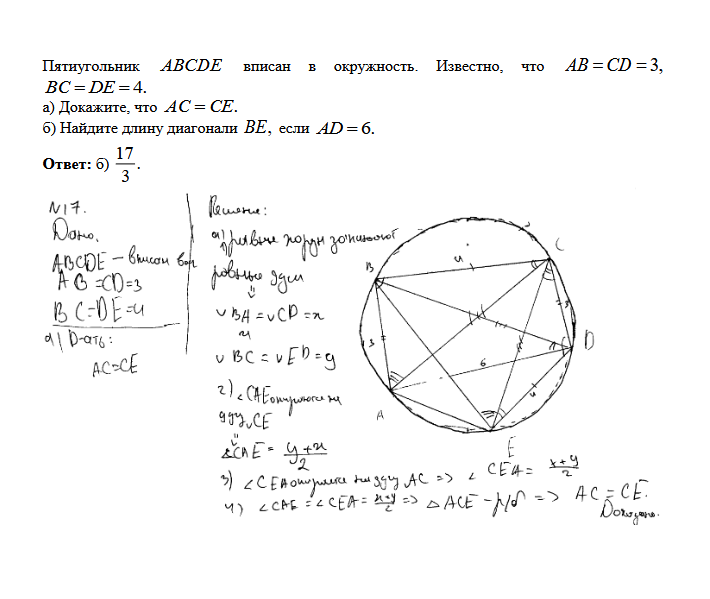 Пятиугольник ABCDE вписан в окружность. Известно, что AB = CD = 3,
BC = DE = 4.
а) Докажите, что AC = CE.
б) Найдите длину диагонали BE, если AD = 6.
Ответ: б) 17/3.
N17.
Дано.
ABCDE – вписан в окр
AB = CD = 3
BC = DE = 4
а) D-ать:
AC = CE
Решение:
а) 1) равные хорды
равные дуги
⇓
∪BA = ∪CD = x
и
∪BC = ∪ED = y
2) ∠CAE опирается на
дугу CE
⇓
∠CAE = (y+x)/2
3) ∠CEA опирается на дугу AC => ∠CEA = (x+y)/2
4) ∠CAE = ∠CEA = (x+y)/2 => △ACE – р/б => AC = CE.
Доказано.
B
4
C
3
D
3
6
4
A
E